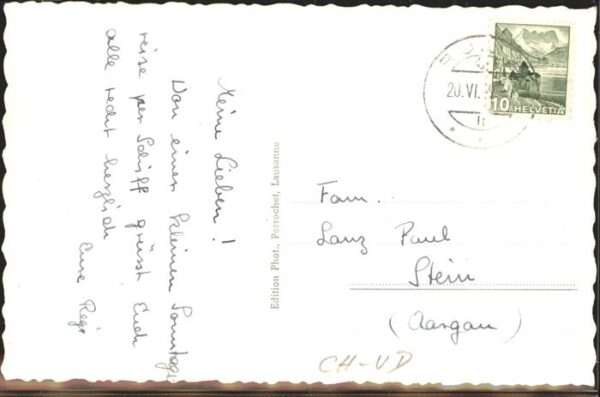 Meine Lieben!
Von einer kleinen Sonntags-
reise per Schiff grüsst Euch
alle recht herzlich
Eure
Edition Phot., Perrochet, Lausanne
20.VI.
10 HELVETIA
Fam.
Lanz Paul
Stein
(Aargau)
CH-VD